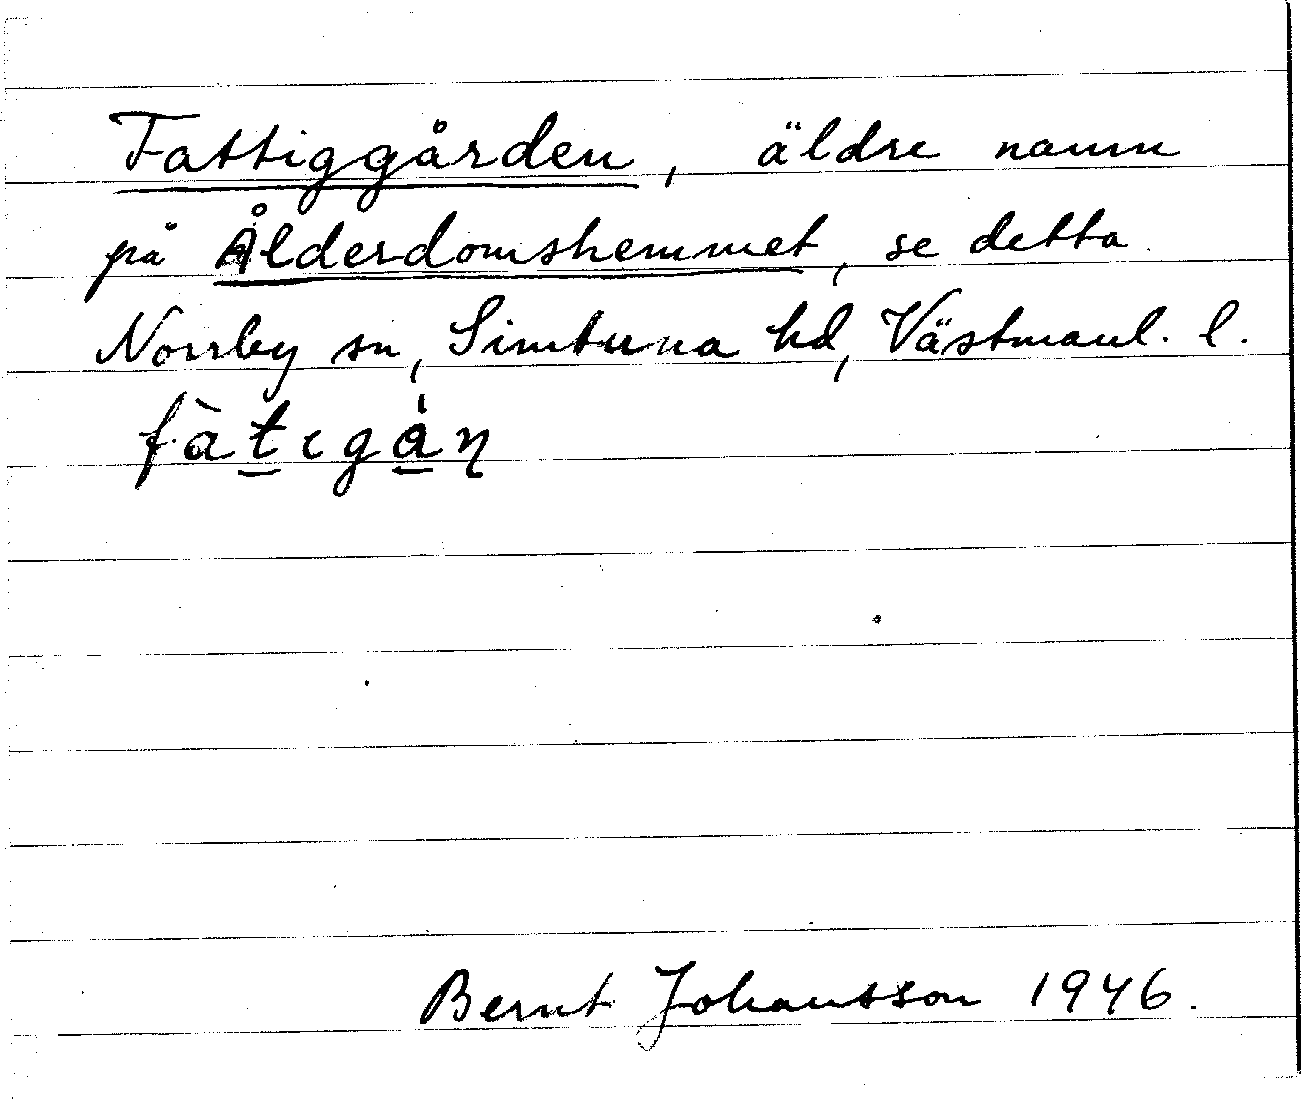 Fattiggården, äldre namn
på Ålderdomshemmet, se detta
Norrby sn, Simtuna hd, Västmanl. l.
fàt̲ıgå̲̀ɳ
Bernt Johansson 1946.